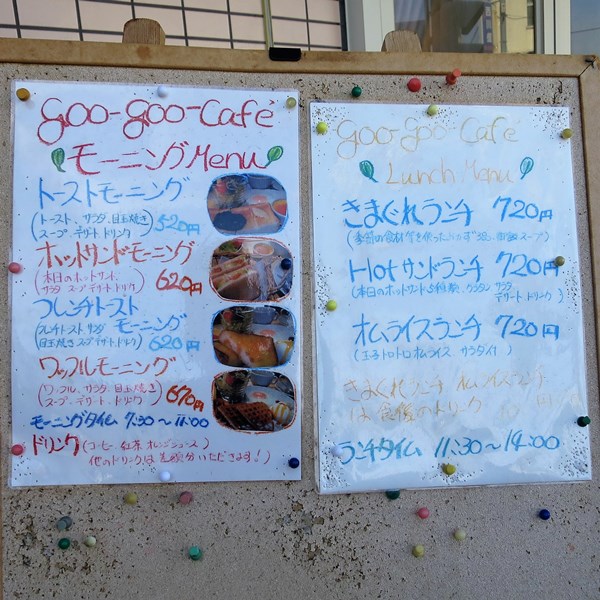 goo-goo-Cafē
モーニングMenu
トーストモーニング
(トースト、サラダ、目玉焼き
スープ、デザート、ドリンク) 520円
ホットサンドモーニング
(本日のホットサンド、
サラダ スープ デザート ドリンク) 620円
フレンチトースト
モーニング
(フレンチトースト サラダ
目玉焼き スープ デザート、ドリンク) 620円
ワッフルモーニング
(ワッフル、サラダ、目玉焼き
スープ、デザート、ドリンク) 670円
モーニングタイム 7:30～11:00
ドリンク(コーヒー 紅茶 オレンジジュース)
他のドリンクは 差額分いただきます!)
goo-goo-Cafe
Lunch Menu
きまぐれランチ 720円
(季節の食材を使った スープ)
Hotサンドランチ 720円
(本日のホットサンド サラダ
デザート ドリンク)
オムライスランチ 720円
(玉子トロトロオムライス、サラダ付)
きまぐれランチ オムライスランチ
は 食後のドリンク 円
ランチタイム 11:30～14:00